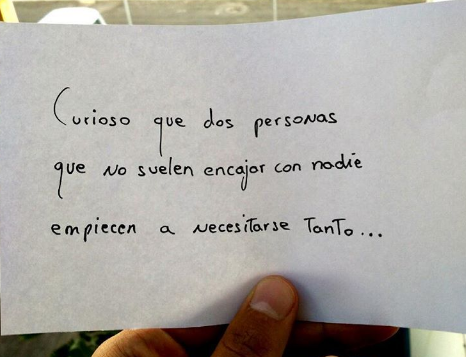 Curioso que dos personas
que no suelen encajar con nadie
empiecen a necesitarse tanto...